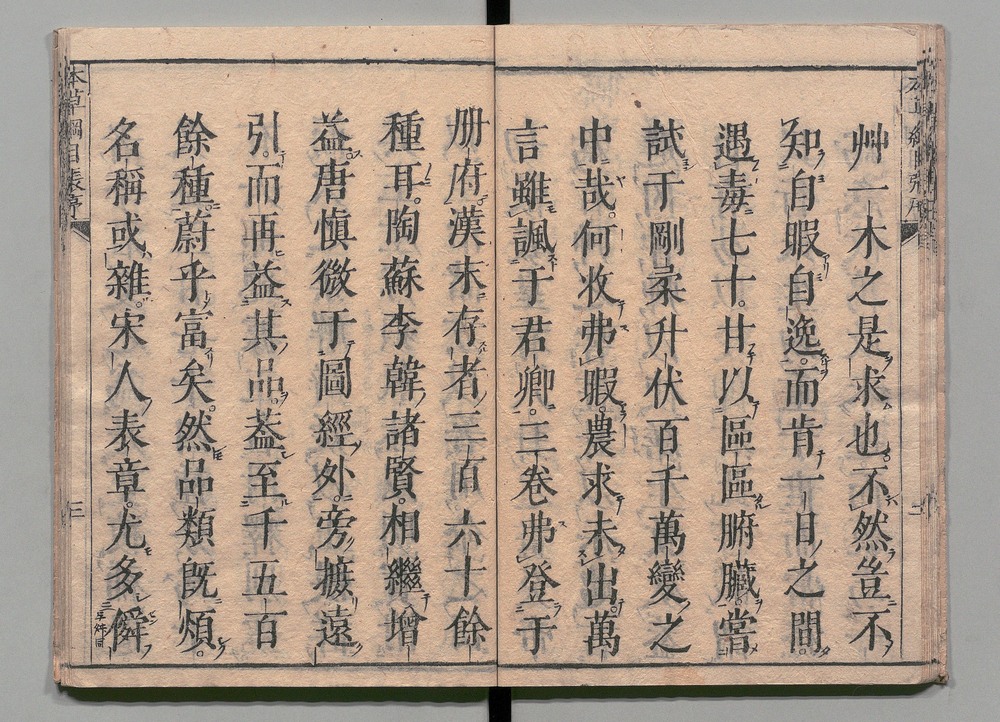 艸一木之是求也不然豈不
知自暇自逸。而肯一日之間
遇毒七十。甘以區區腑臟。嘗
試于剛柔升伏百千萬變之
中哉。何收弗暇。農求未出萬
言雖諷于君卿。三卷弗登于
册府。漢末存者三百六十餘
種耳。陶蘇李韓諸賢。相繼增
益。唐慎微于圖經外。旁摭遠
引。而再益其品。葢至千五百
餘種。蔚乎富矣。然品類旣煩。
名稱或雜。宋人表章。尤多僢
本草綱目張序
三